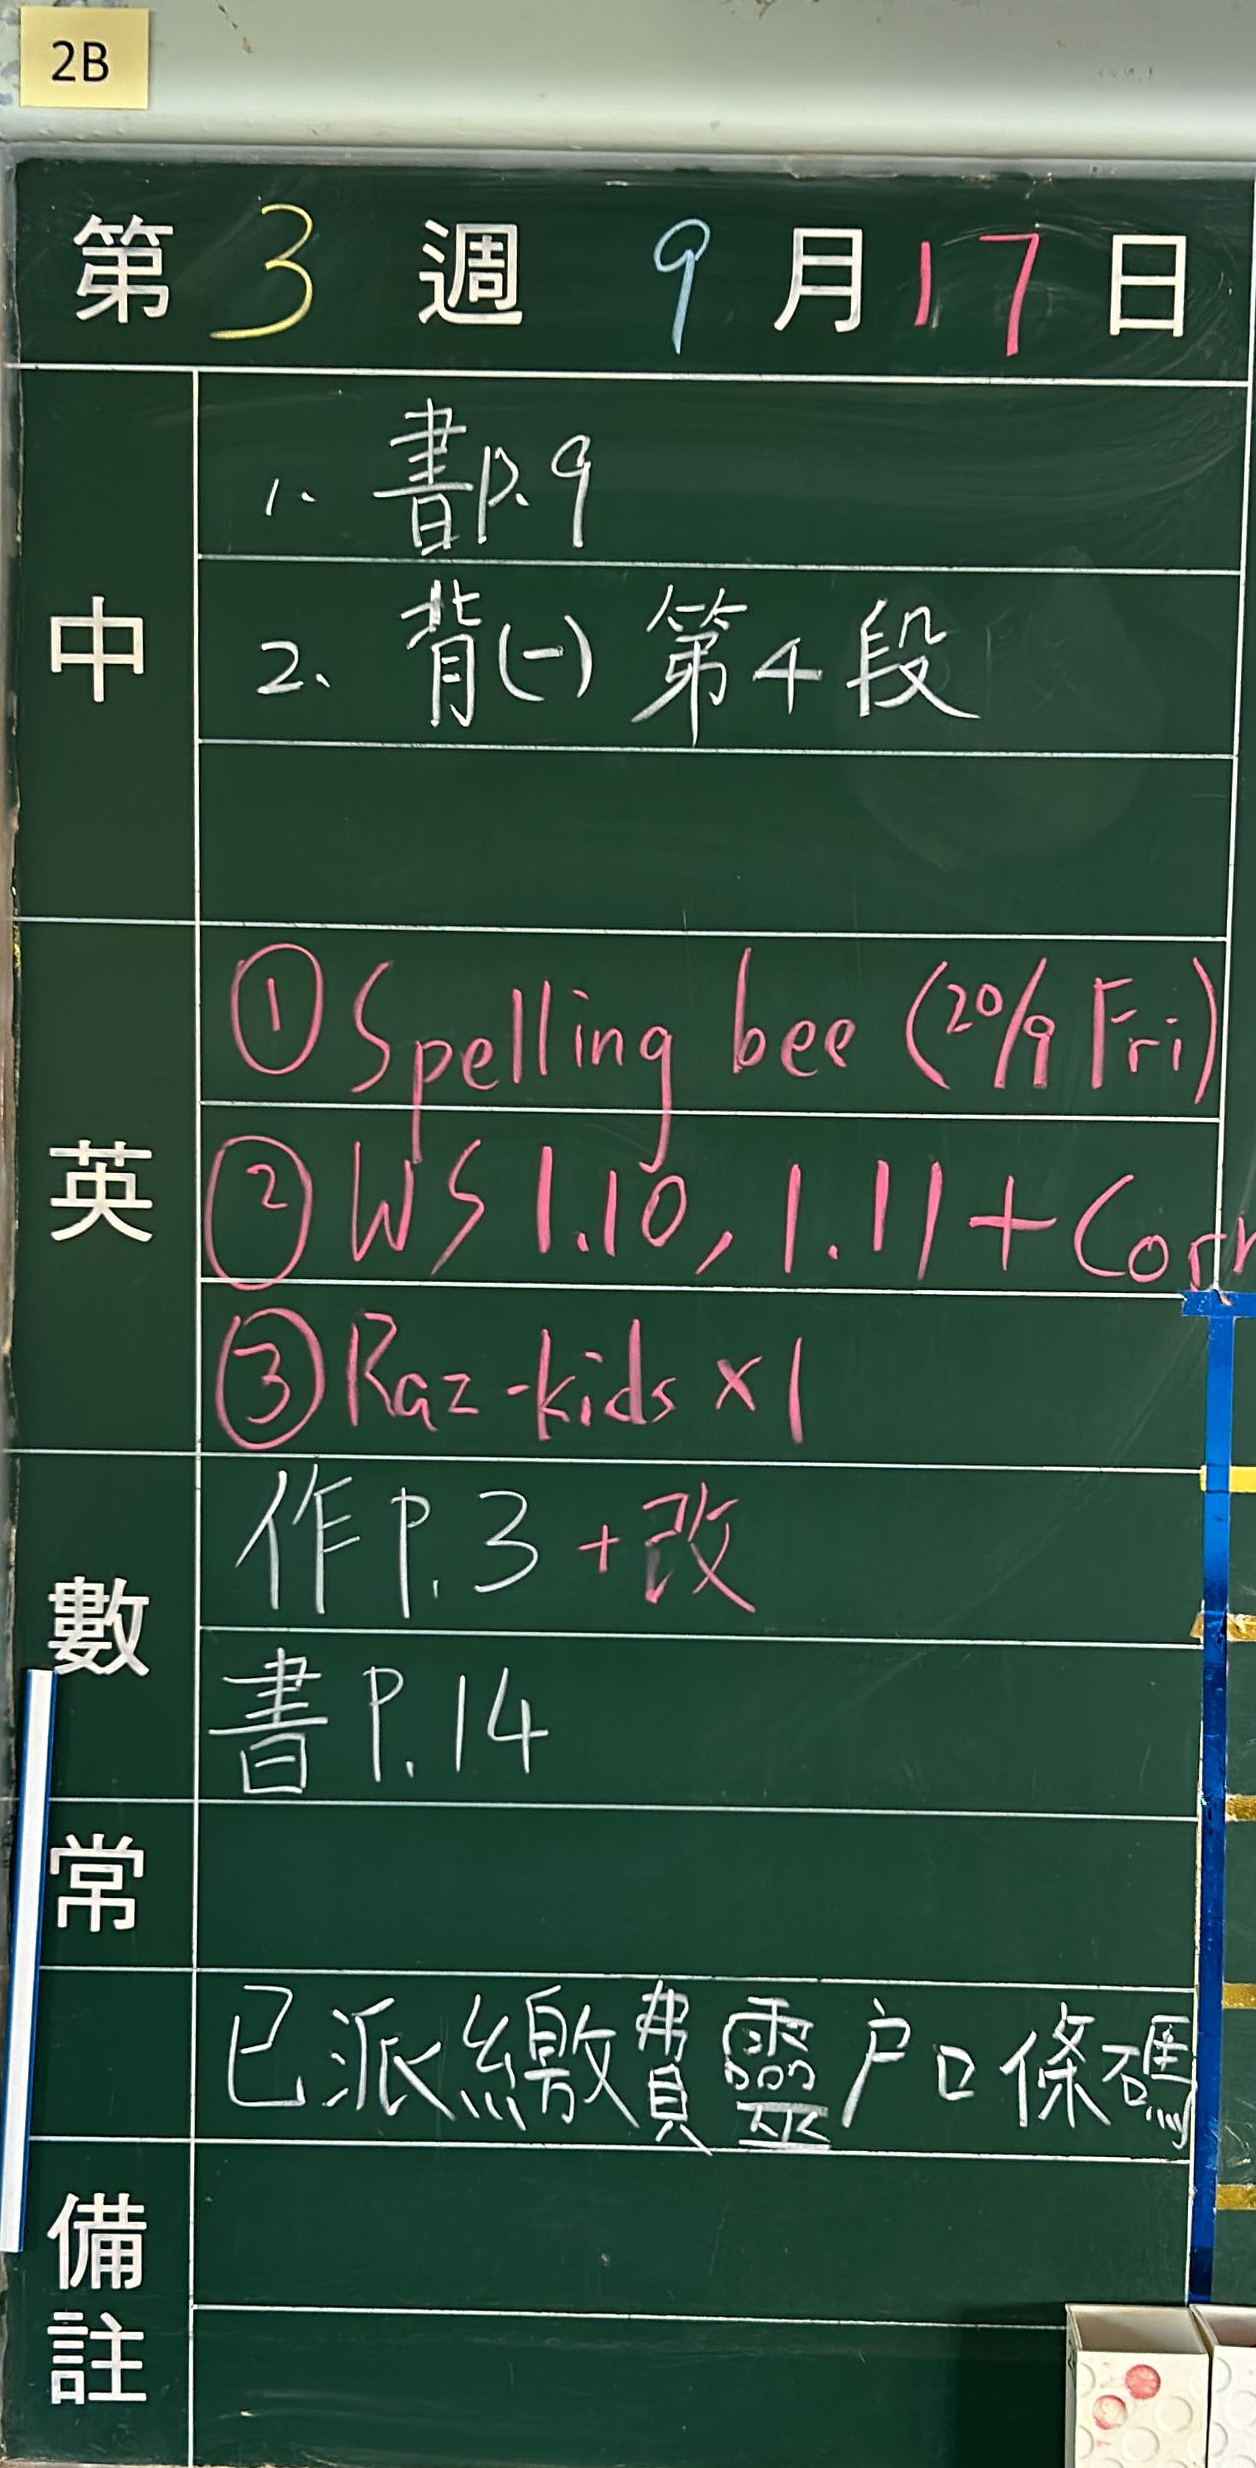 2B
第 3 週 9 月 17 日
中
1. 書p.9
2. 背(一) 第4段
英
① Spelling bee (20/9 Fri)
② WS 1.10, 1.11 + Corr
③ Raz-kids ×1
數
作P.3 + 改
書P.14
常
已派繳費靈户口條碼
備註